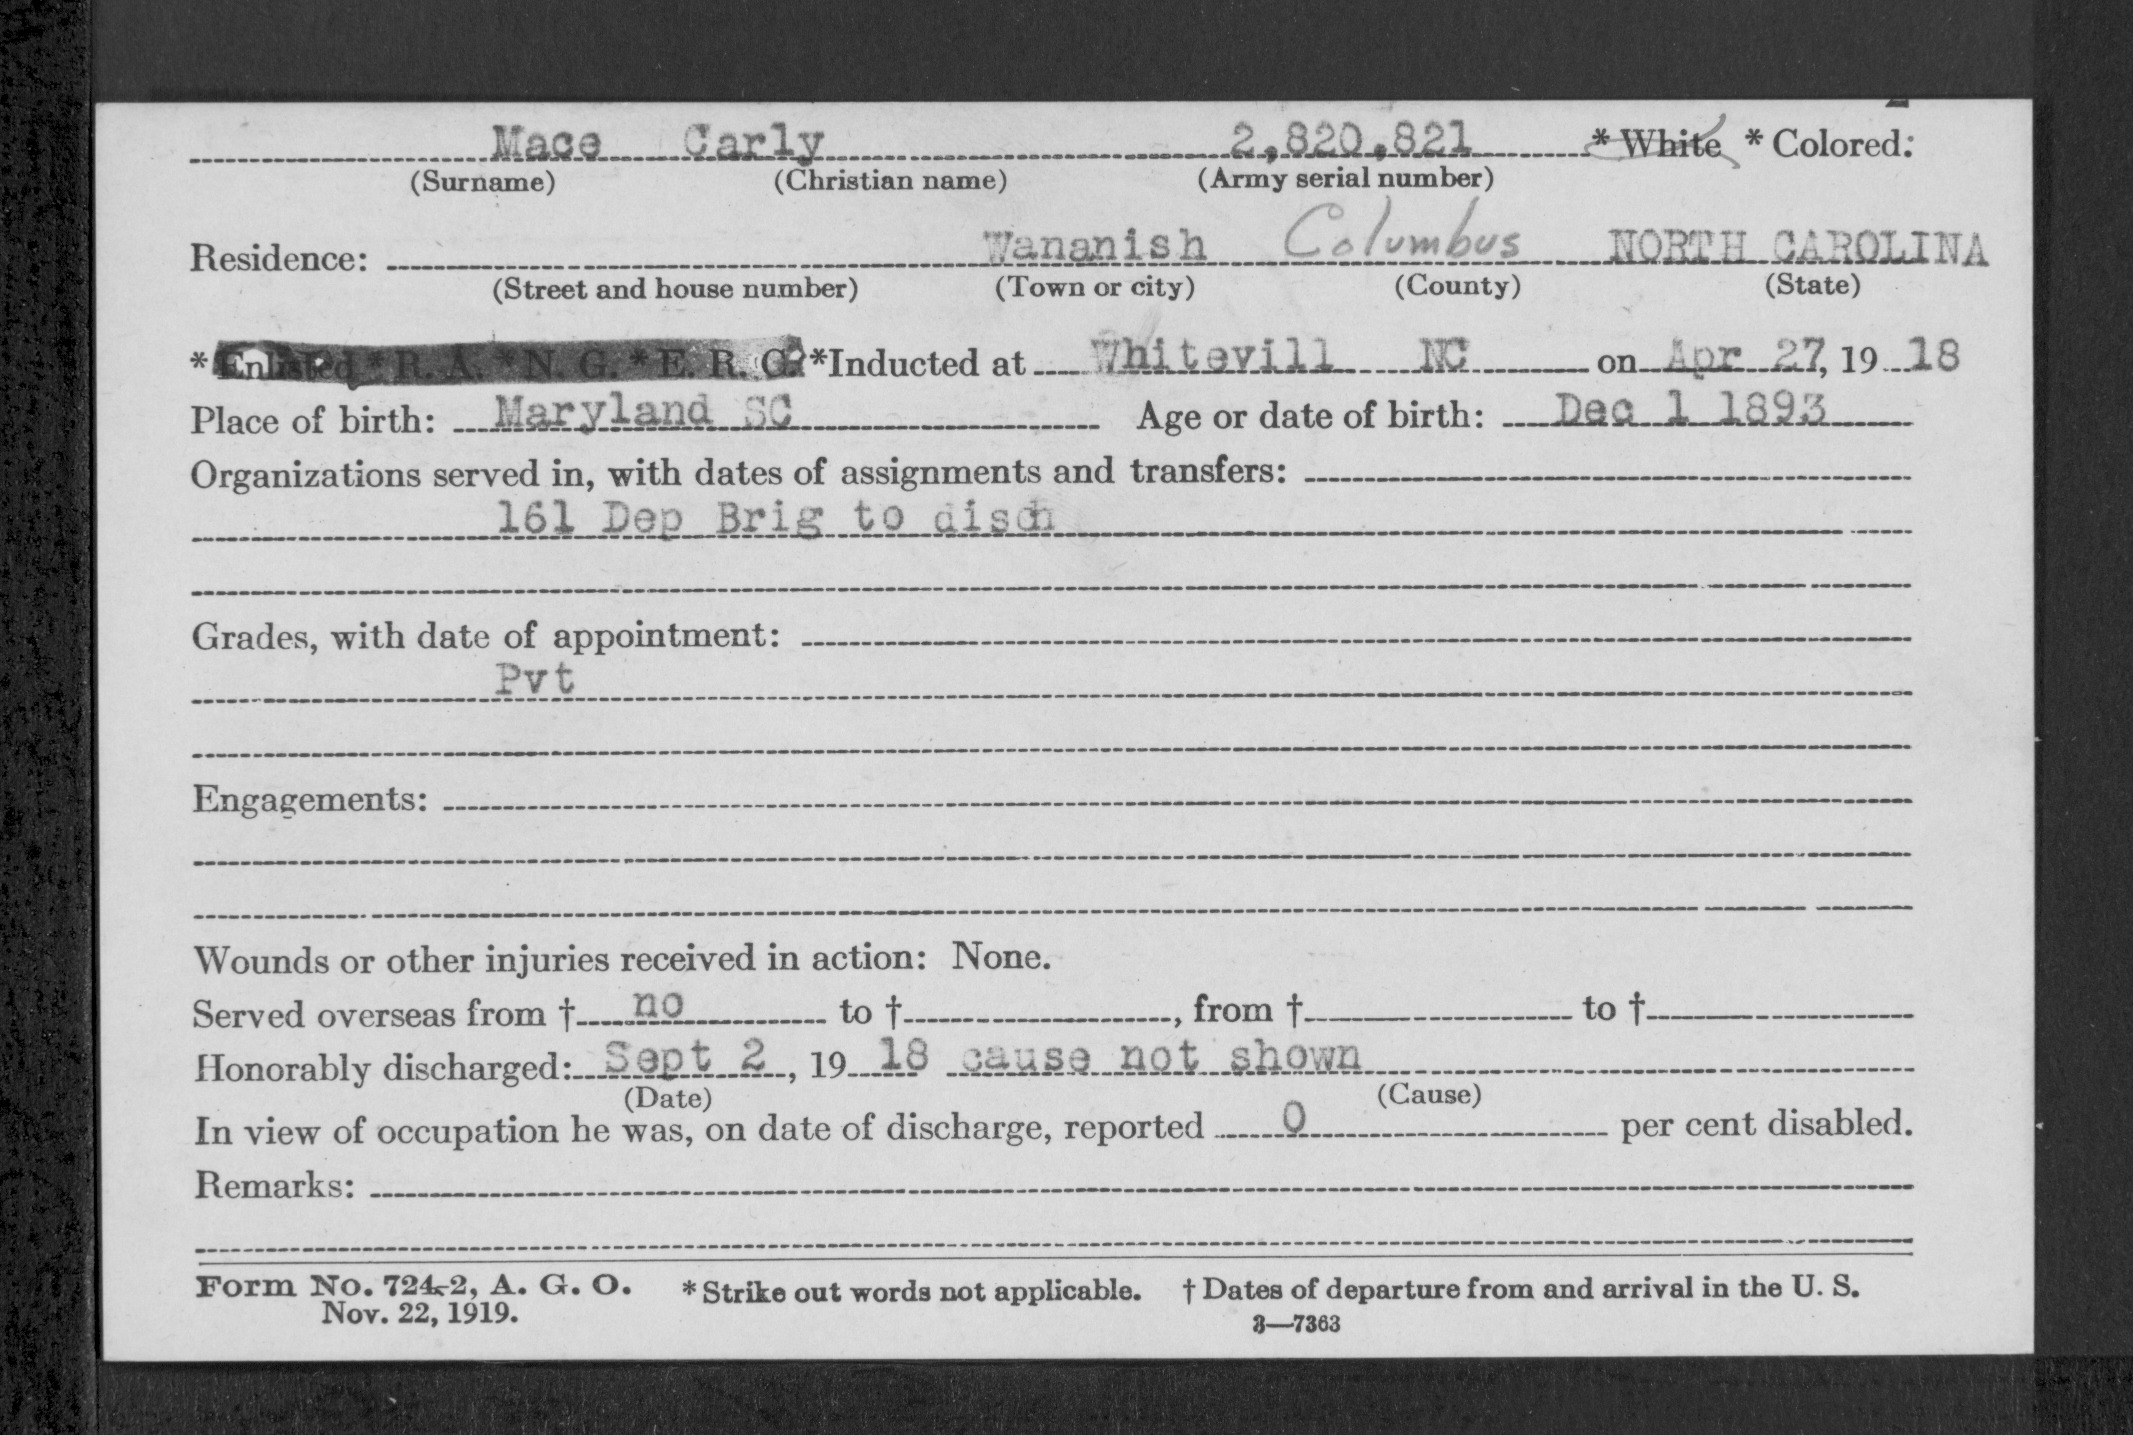 Mace Carly 2,820,821 * White * Colored:
(Surname) (Christian name) (Army serial number)
Residence: Wananish Columbus NORTH CAROLINA
(Street and house number) (Town or city) (County) (State)
* Enlisted * R. A. * N. G. * E. R. C. *Inducted at Whitevill NC on Apr 27, 19 18
Place of birth: Maryland SC Age or date of birth: Dec 1 1893
Organizations served in, with dates of assignments and transfers:
161 Dep Brig to disch
Grades, with date of appointment:
Pvt
Engagements:
Wounds or other injuries received in action: None.
Served overseas from † no to †, from † to †
Honorably discharged: Sept 2, 19 18 cause not shown
(Date) (Cause)
In view of occupation he was, on date of discharge, reported 0 per cent disabled.
Remarks:
Form No. 724-2, A. G. O. * Strike out words not applicable. † Dates of departure from and arrival in the U. S.
Nov. 22, 1919. 3—7363